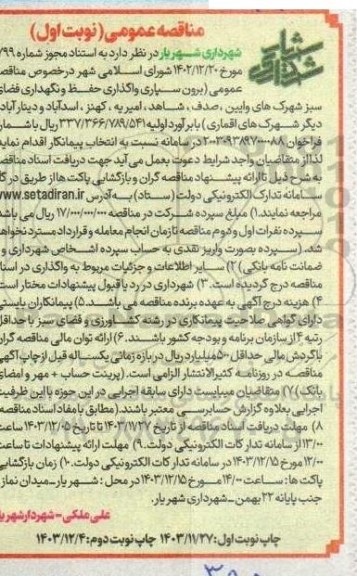 مناقصه عمومی (نوبت اول)
شهرداری شهریار در نظر دارد به استناد مجوز شماره ۷۹۹/
مورخ ۱۴۰۲/۱۲/۲۰ شورای اسلامی شهر درخصوص مناقصه
عمومی (برون سپاری واگذاری حفظ و نگهداری فضای
سبز شهرک های وایین، صدف، شاهد، امیریه، کهنز، اسدآباد و دینارآباد
دیگر شهرک های اقماری) با برآورد اولیه ۳۳۷/۳۶۶/۷۸۹/۵۴۱ ریال با شماره
فراخوان ۲۰۰۳۰۹۳۸۹۷۰۰۰۰۸۸ در سامانه نسبت به انتخاب پیمانکار اقدام نماید
لذا از متقاضیان واجد شرایط دعوت بعمل می آید جهت دریافت اسناد مناقصه
به شرح ذیل تا ارائه پیشنهاد مناقصه گران و بازگشایی پاکت ها از طریق درگاه
سامانه تدارک الکترونیکی دولت (ستاد) به آدرس www.setadiran.ir
مراجعه نمایند. ۱) مبلغ سپرده شرکت در مناقصه ۱۷/۰۰۰/۰۰۰/۰۰۰ ریال می باشد
سپرده نفرات اول و دوم مناقصه تا زمان انجام معامله و قرارداد مسترد نخواهد
شد. (سپرده بصورت واریز نقدی به حساب سپرده اشخاص شهرداری و
ضمانت نامه بانکی) ۲) سایر اطلاعات و جزئیات مربوط به واگذاری در اسناد
مناقصه درج گردیده است. ۳) شهرداری در رد یا قبول پیشنهادات مختار است
۴) هزینه درج آگهی به عهده برنده مناقصه می باشد. ۵) پیمانکاران بایستی
دارای گواهی صلاحیت پیمانکاری در رشته کشاورزی و فضای سبز با حداقل
رتبه ۴ از سازمان برنامه و بودجه کشور باشند. ۶) ارائه توان مالی مناقصه گران
با گردش مالی حداقل ۵۰ میلیارد ریال در بازه زمانی یکساله قبل از چاپ آگهی
مناقصه در روزنامه کثیرالانتشار الزامی است. (پرینت حساب + مهر و امضای
بانک) ۷) متقاضیان میبایست دارای سابقه اجرایی در این حوزه با این ظرفیت
اجرایی بعلاوه گزارش حسابرسی معتبر باشند. (مطابق با مفاد اسناد مناقصه
۸) مهلت دریافت اسناد مناقصه از تاریخ ۱۴۰۳/۱۱/۲۷ تا تاریخ ۱۴۰۳/۱۲/۰۵ ساعت
۱۳/۰۰ از سامانه تدارکات الکترونیکی دولت. ۹) مهلت ارائه پیشنهادات تا ساعت
۱۲/۰۰ مورخ ۱۴۰۳/۱۲/۱۵ در سامانه تدارکات الکترونیکی دولت. ۱۰) زمان بازگشایی
پاکت ها: ساعت ۱۴/۰۰ مورخ ۱۴۰۳/۱۲/۱۵ در محل: شهریار_میدان نماز
جنب پایانه ۲۲ بهمن_شهرداری شهریار.
علی ملکی-شهردار شهریار
چاپ نوبت اول: ۱۴۰۳/۱۱/۲۷ چاپ نوبت دوم: ۱۴۰۳/۱۲/۴